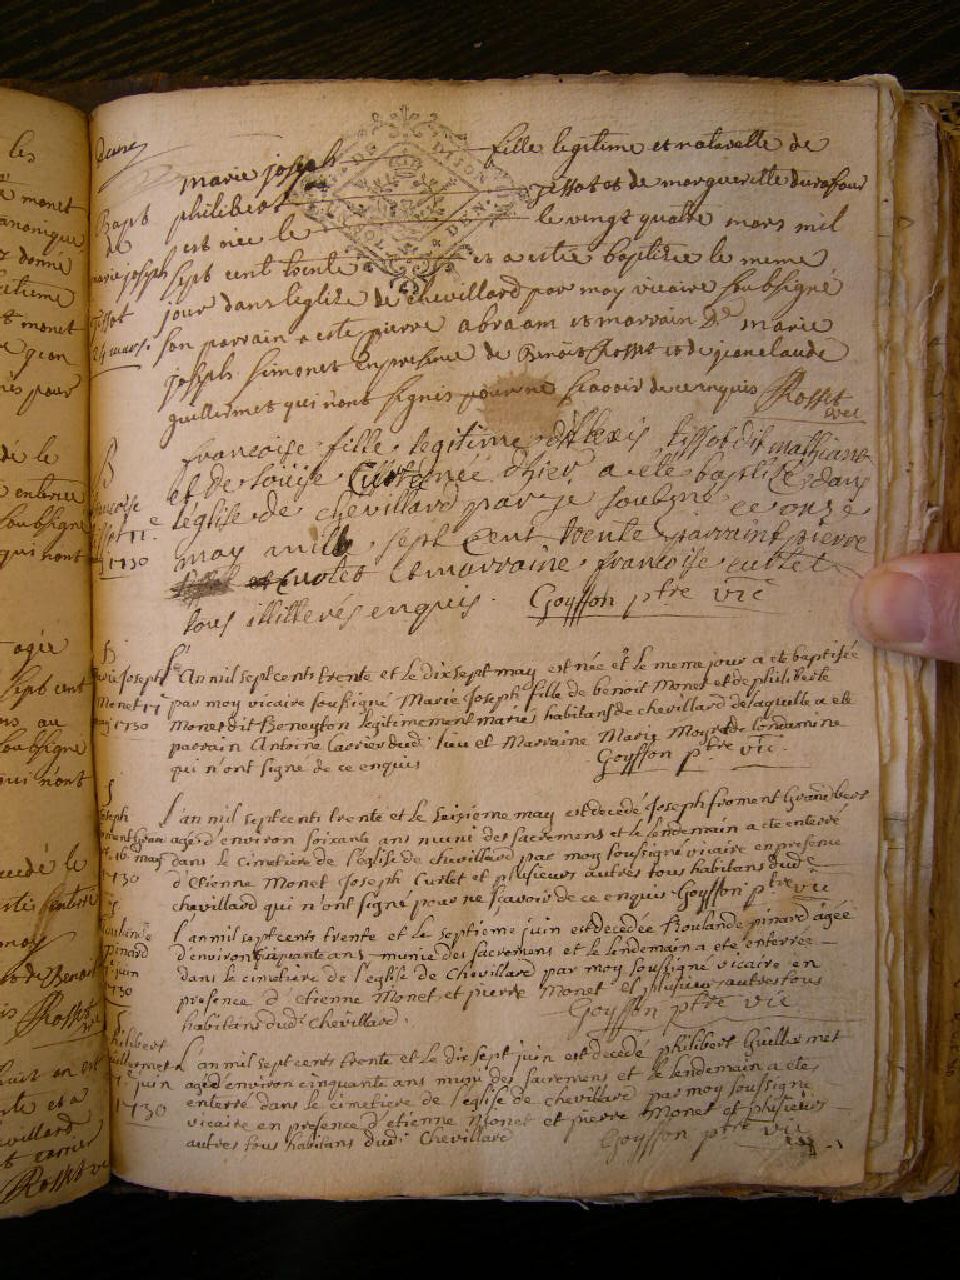 marie joseph fille legitime et naturelle de
philibert tissot et de marguerite durafour
est née le le vingt quatre mars mil
sept cent trente et a estée baptisée le meme
jour dans leglize de chevillard par moy vicaire soubsigné
son parrain a esté pierre abraam et marrain Dle marie
joseph simonet en presence de Benoit Rosset et de jeanclaude
guillermet qui nont signés pour ne scavoir de ce enquis Rosset
vic
B
francoise
tissot 11e
1730
francoise fille legitime d'Alexis tissot dit mathiane
et de louise Curtet née d'hier a été baptisée dans
l'église de chevillard par je soubsné ce onze
may mille sept cent trente parraint pierre
Curtet et marraine francoise curtet
tous illitterés enquis. Goyffon ptre vic
B
marie joseph
Monet 17
may 1730
L'An mil sept cents trente et le dix sept may est née et le meme jour a eté baptisée
par moy vicaire soussigné Marie Joseph fille de benoit Monet et de philiberte
Monet dit Boneyton legitimement mariés habitans de chevillard de laquelle a eté
parrain Antoine Carrier dud. lieu et Marraine Marie Moyret de Condamine
qui n'ont signé de ce enquis Goyffon ptre vic.
S
Joseph
froment Grand
16 may
1730
L'an mil sept cents trente et le seizieme may est decedé Joseph froment Grand bers
agé d'environ soixante ans muni des sacremens et le lendemain a eté enterré
dans le cimetiere de l'église de chevillard par moy soussigné vicaire en presence
d'Etienne Monet Joseph Curtet et plusieurs autres tous habitans dud.
chevillard qui n'ont signé pour ne sçavoir de ce enquis Goyffon ptre vic
S
Roulande
pinard
7 juin
1730
L'an mil sept cents trente et le septieme juin est decedée Roulande pinard agée
d'environ quarante ans munie des sacremens et le lendemain a eté enterrée
dans le cimetiere de l'eglise de Chevillard par moy soussigné vicaire en
presence d'Etienne Monet et pierre Monet et plusieurs autres tous
habitans dud. chevillard. Goyffon ptre vic
S
philibert
guillermet
17 juin
1730
L'an mil sept cents trente et le dix sept juin est decedé philibert Guillermet
agé d'environ cinquante ans muni des sacremens et le lendemain a eté
enterré dans le cimetiere de l'eglise de chevillard par moy soussigné
vicaire en presence d'etienne Monet et pierre Monet et plusieurs
autres tous habitans dud. Chevillard Goyffon ptre vic